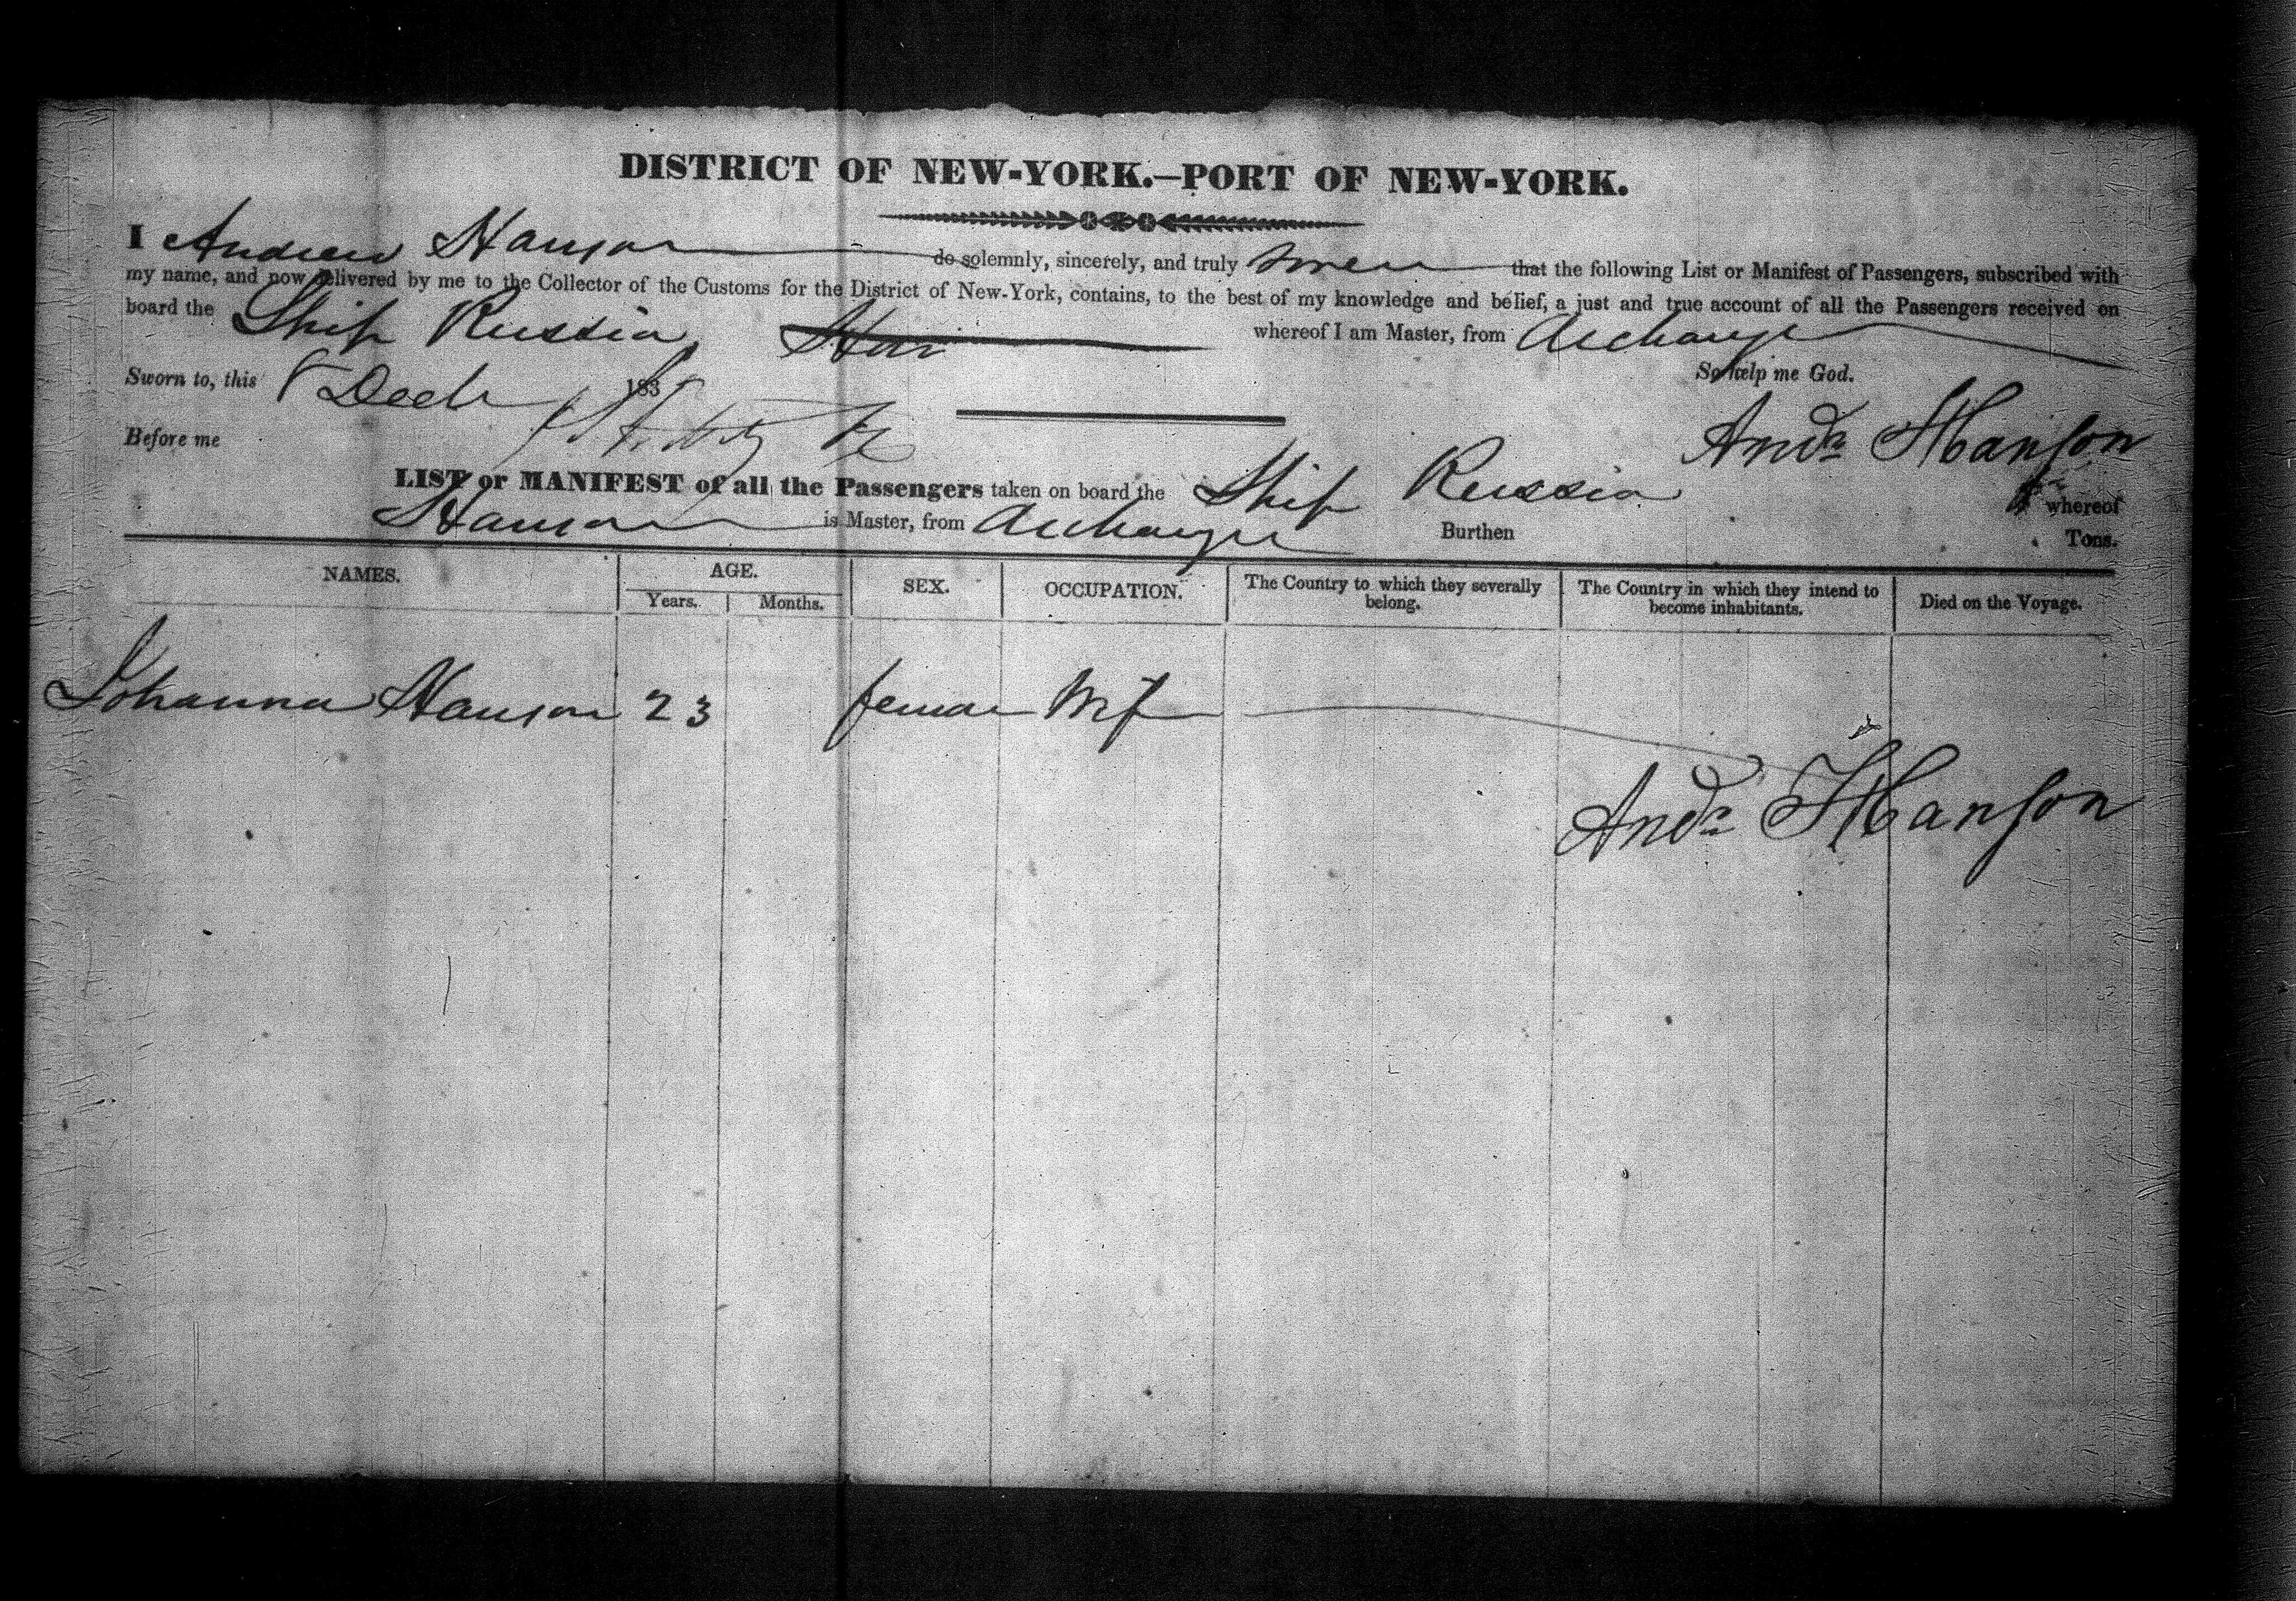 DISTRICT OF NEW-YORK.—PORT OF NEW-YORK.
I Andrew Hanson do solemnly, sincerely, and truly swear that the following List or Manifest of Passengers, subscribed with
my name, and now delivered by me to the Collector of the Customs for the District of New-York, contains, to the best of my knowledge and belief, a just and true account of all the Passengers received on
board the Ship Russia whereof I am Master, from Archangel
So help me God.
Sworn to, this 8 Decb 183
Andw Hanson
Before me
LIST or MANIFEST of all the Passengers taken on board the Ship Russia whereof
Hanson is Master, from Archangel Burthen Tons.
NAMES. AGE. SEX. OCCUPATION. The Country to which they severally belong. The Country in which they intend to become inhabitants. Died on the Voyage.
Years. Months.
Johanna Hanson 23 female Wife
Andw Hanson